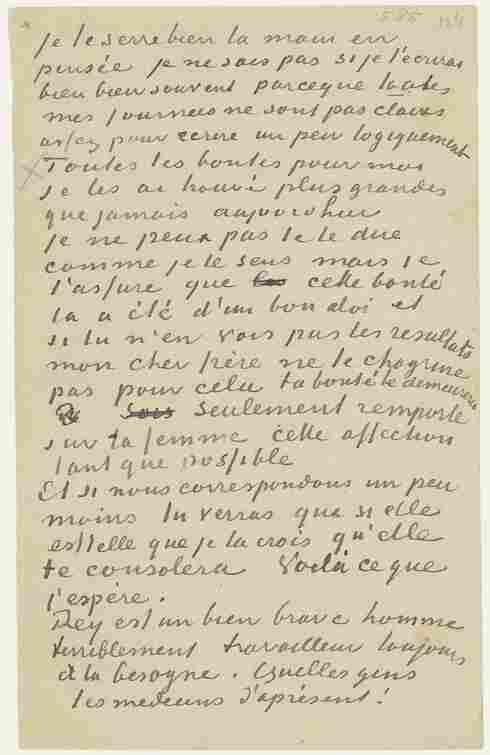 585
Je te serre bien la main en
pensée je ne sais pas si je t'écrirai
bien bien souvent parceque toutes
mes journees ne sont pas claires
assez pour ecrire un peu logiquement
Toutes tes bontes pour moi
je les ai trouvé plus grandes
que jamais aujourd'hui
je ne peux pas te le dire
comme je le sens mais je
t'assure que cette bonté
la a été d'un bon aloi et
si tu n'en vois pas les resultats
mon cher frère ne te chagrine
pas pour cela ta bonté te demeurera
Seulement reporte
sur ta femme cette affection
tant que possible
Et si nous correspondons un peu
moins tu verras que si elle
est telle que je la crois qu'elle
te consolera Voilà ce que
j'espère.
Rey est un bien brave homme
terriblement travailleur toujours
à la besogne. Quelles gens
les medecins d'apresent!